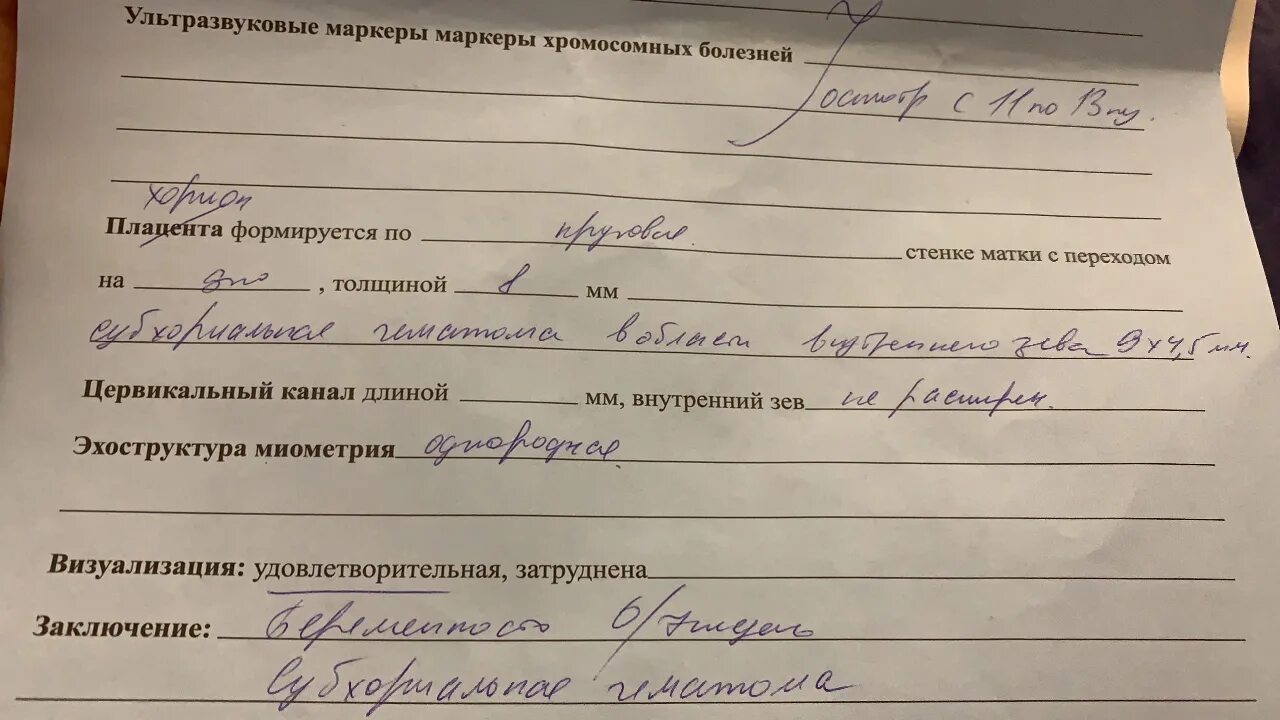 Ультразвуковые маркеры маркеры хромосомных болезней
осмотр с 11 по 13 н.
хорион
Плацента формируется по круговая стенке матки с переходом
на дно, толщиной 8 мм
субхориальная гематома в области внутреннего зева 9х4,5 мм.
Цервикальный канал длиной мм, внутренний зев не расширен.
Эхоструктура миометрия однородная.
Визуализация: удовлетворительная, затруднена
Заключение: Беременность 6/7 недель
Субхориальная гематома